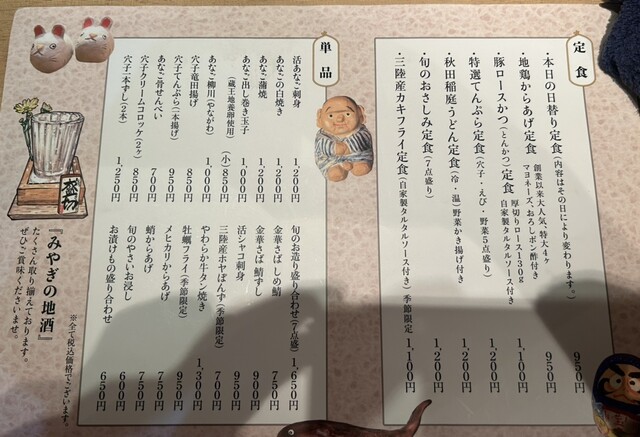 定食
・本日の日替り定食(内容はその日により変わります。) 950円
・地鶏からあげ定食 創業以来大人気、特大4ヶ マヨネーズ、おろしポン酢付き 950円
・豚ロースかつ(とんかつ)定食 厚切りロース130g 自家製タルタルソース付き 1,100円
・特選てんぷら定食(穴子・えび・野菜5点盛り) 1,200円
・秋田稲庭うどん定食(冷・温)野菜かき揚げ付き 1,200円
・旬のおさしみ定食(7点盛り) 1,200円
・三陸産カキフライ定食(自家製タルタルソース付き) 季節限定 1,100円
単品
活あなご刺身 1,200円
あなごの白焼き 1,200円
あなご蒲焼 1,200円
あなご出し巻き玉子 1,000円
(蔵王地養卵使用) (小)850円
あなご柳川(やながわ) 1,000円
穴子竜田揚げ 850円
穴子てんぷら(本揚げ) 950円
あなご骨せんべい 700円
穴子クリームコロッケ(2ヶ) 850円
穴子一本ずし(2本) 1,250円
旬のお造り盛り合わせ(7点盛) 1,650円
金華さば しめ鯖 750円
金華さば 鯖すし 900円
活シャコ刺身 950円
三陸産ホヤばんず(季節限定) 700円
やわらか牛タン焼き 1,300円
牡蠣フライ(季節限定) 950円
メヒカリからあげ 750円
蛸からあげ 750円
旬のやさいお浸し 600円
お漬けもの盛り合わせ 650円
『みやぎの地酒』
たくさん取り揃えております。
ぜひご賞味くださいませ。
※全て税込価格でございます。